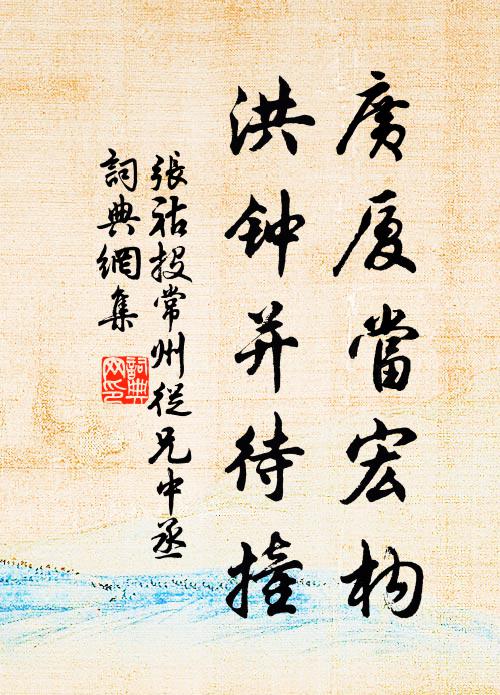 廣厦當宏构
洪钟并待撞
張祜投常州從兄中丞
詞典網集
詞典
网印